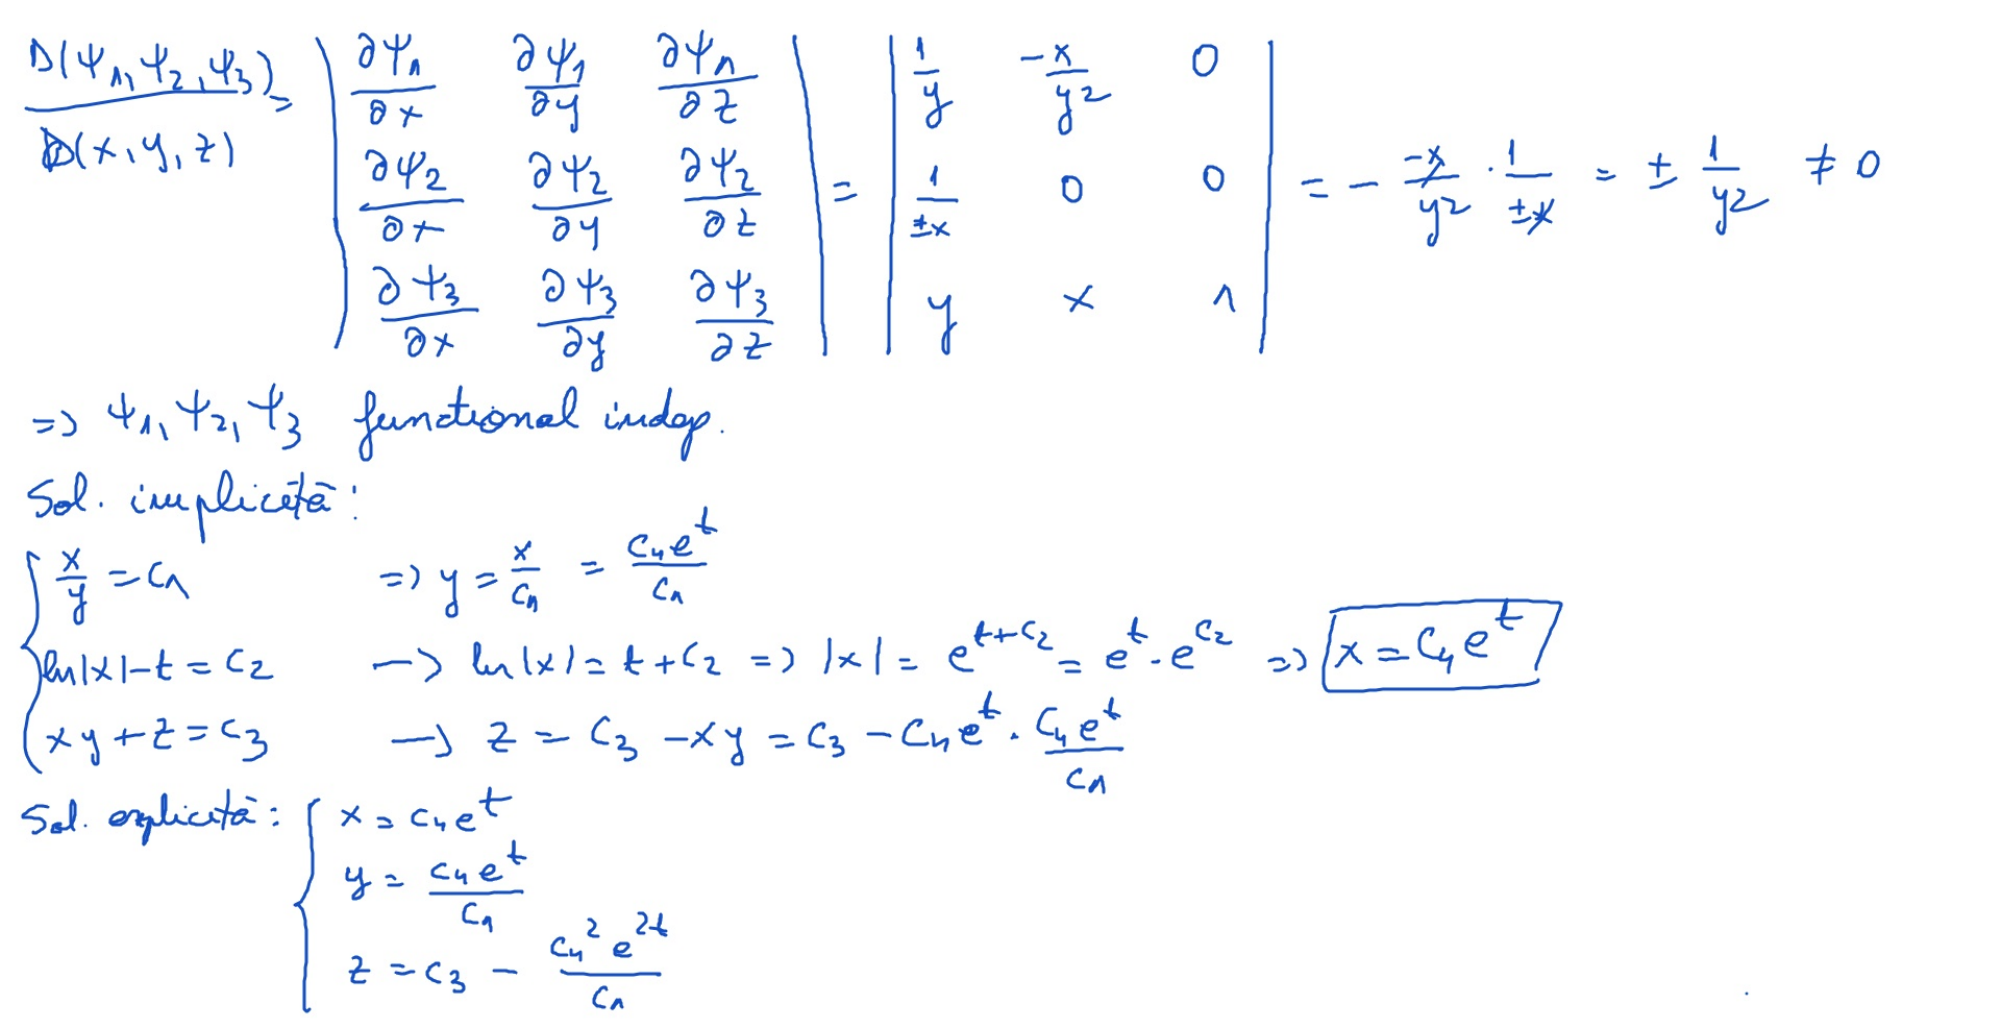 D(ψ₁, ψ₂, ψ₃)/D(x, y, z) = | ∂ψ₁/∂x ∂ψ₁/∂y ∂ψ₁/∂z ; ∂ψ₂/∂x ∂ψ₂/∂y ∂ψ₂/∂z ; ∂ψ₃/∂x ∂ψ₃/∂y ∂ψ₃/∂z | = | 1/y -x/y² 0 ; 1/±x 0 0 ; y x 1 | = - -x/y² · 1/±x = ± 1/y² ≠ 0
=> ψ₁, ψ₂, ψ₃ functional indep.
Sol. implicită:
{ x/y = c₁ => y = x/c₁ = c₄e^t/c₁
ln|x| - t = c₂ -> ln|x| = t + c₂ => |x| = e^(t+c₂) = e^t · e^c₂ => x = c₄e^t
xy + z = c₃ -> z = c₃ - xy = c₃ - c₄e^t · c₄e^t/c₁
Sol. explicită: { x = c₄e^t
y = c₄e^t/c₁
z = c₃ - c₄²e^2t/c₁